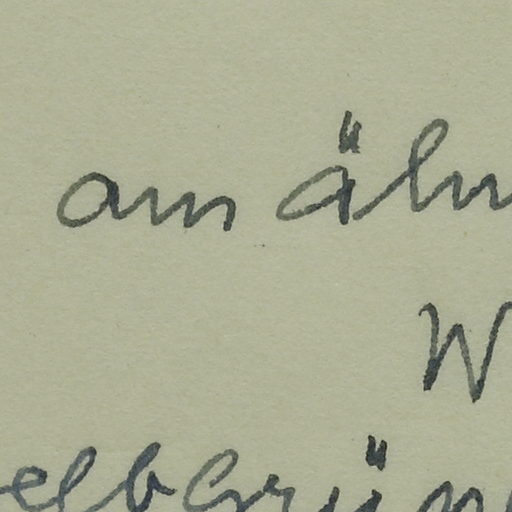 am ähn
W
elbgrün